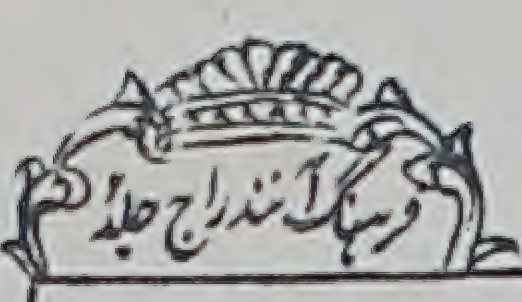 فرہنگ آنندراج جلد